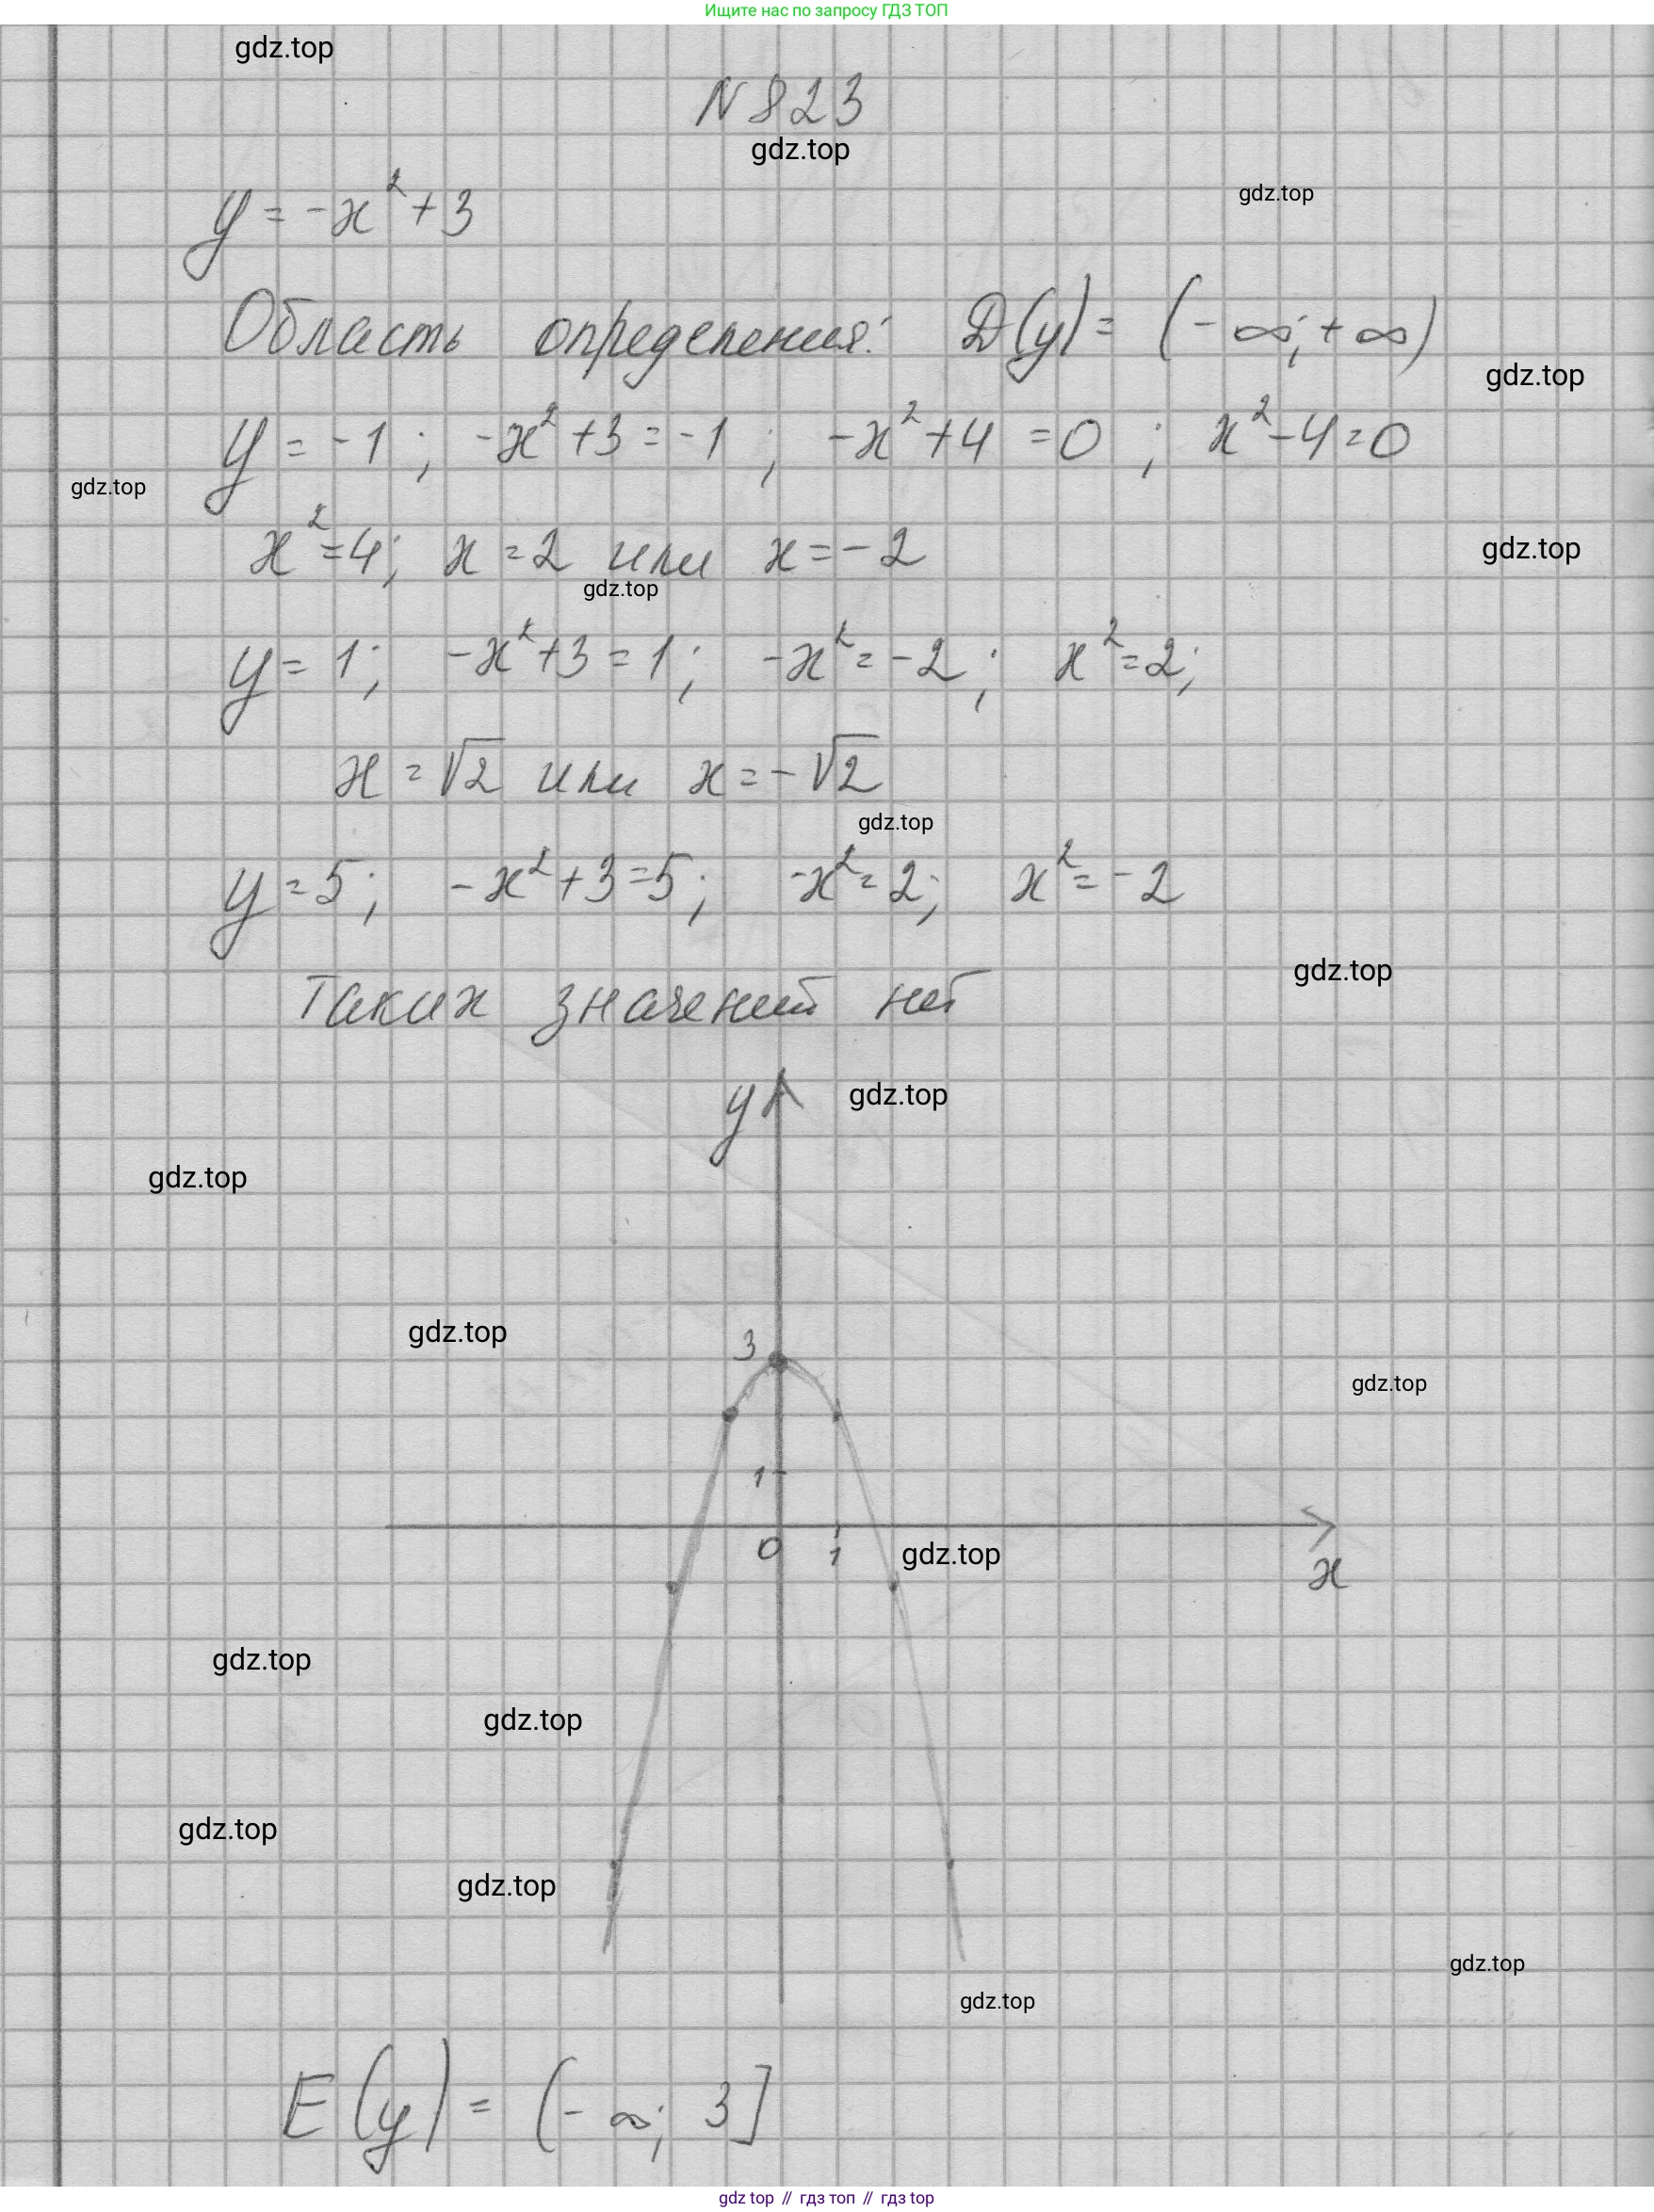 Ищите нас по запросу ГДЗ ТОП
gdz.top
N 823
gdz.top
gdz.top
y = -x² + 3
Область определения: D(y) = (-∞; +∞)
gdz.top
y = -1 ; -x² + 3 = -1 ; -x² + 4 = 0 ; x² - 4 = 0
gdz.top
x² = 4; x = 2 или x = -2
gdz.top
gdz.top
y = 1; -x² + 3 = 1; -x² = -2; x² = 2;
x = √2 или x = -√2
gdz.top
y = 5; -x² + 3 = 5; -x² = 2; x² = -2
gdz.top
Таких значений нет
y
gdz.top
gdz.top
gdz.top
3
gdz.top
1
0 1
gdz.top
x
gdz.top
gdz.top
gdz.top
gdz.top
gdz.top
gdz.top
E(y) = (-∞; 3]
gdz top // гдз топ // гдз top